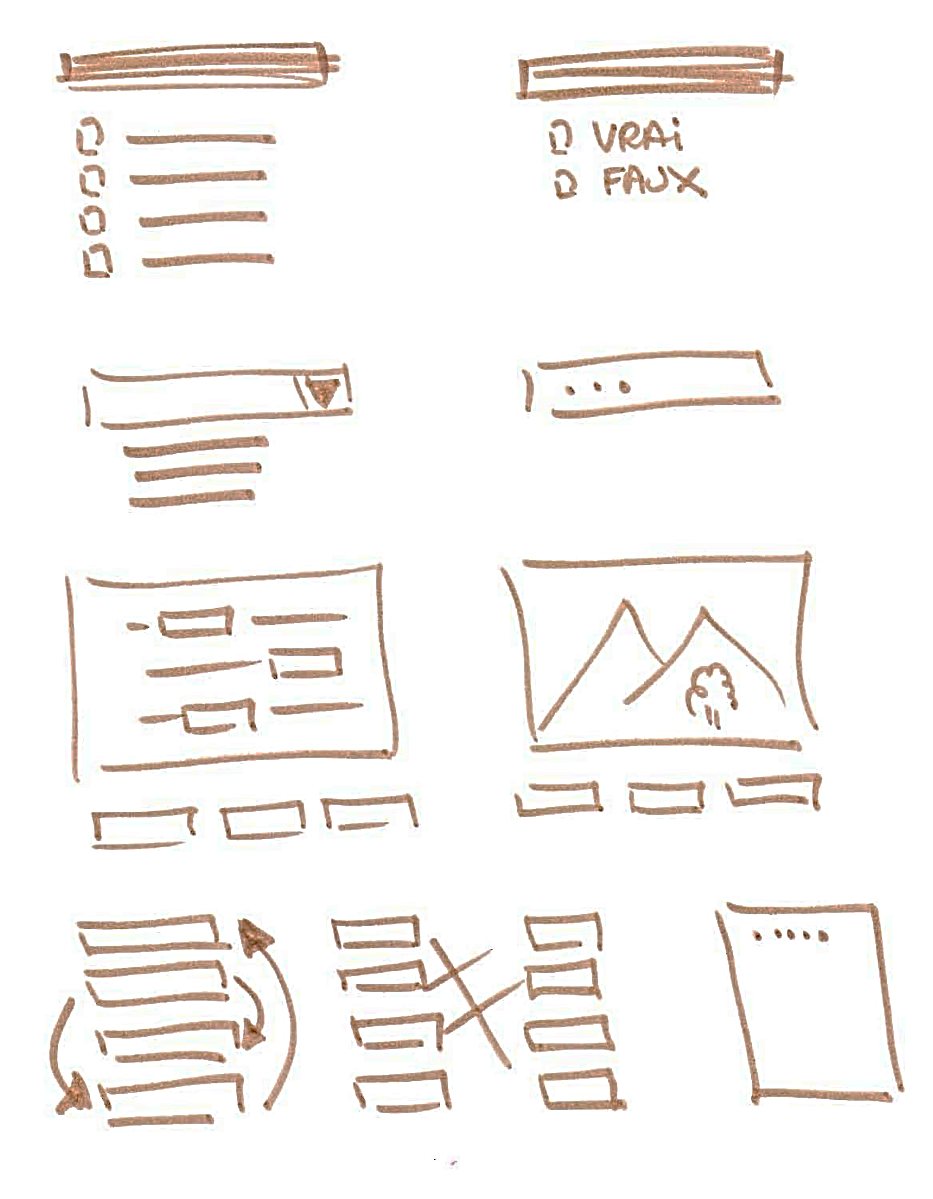 VRAi
FAUX